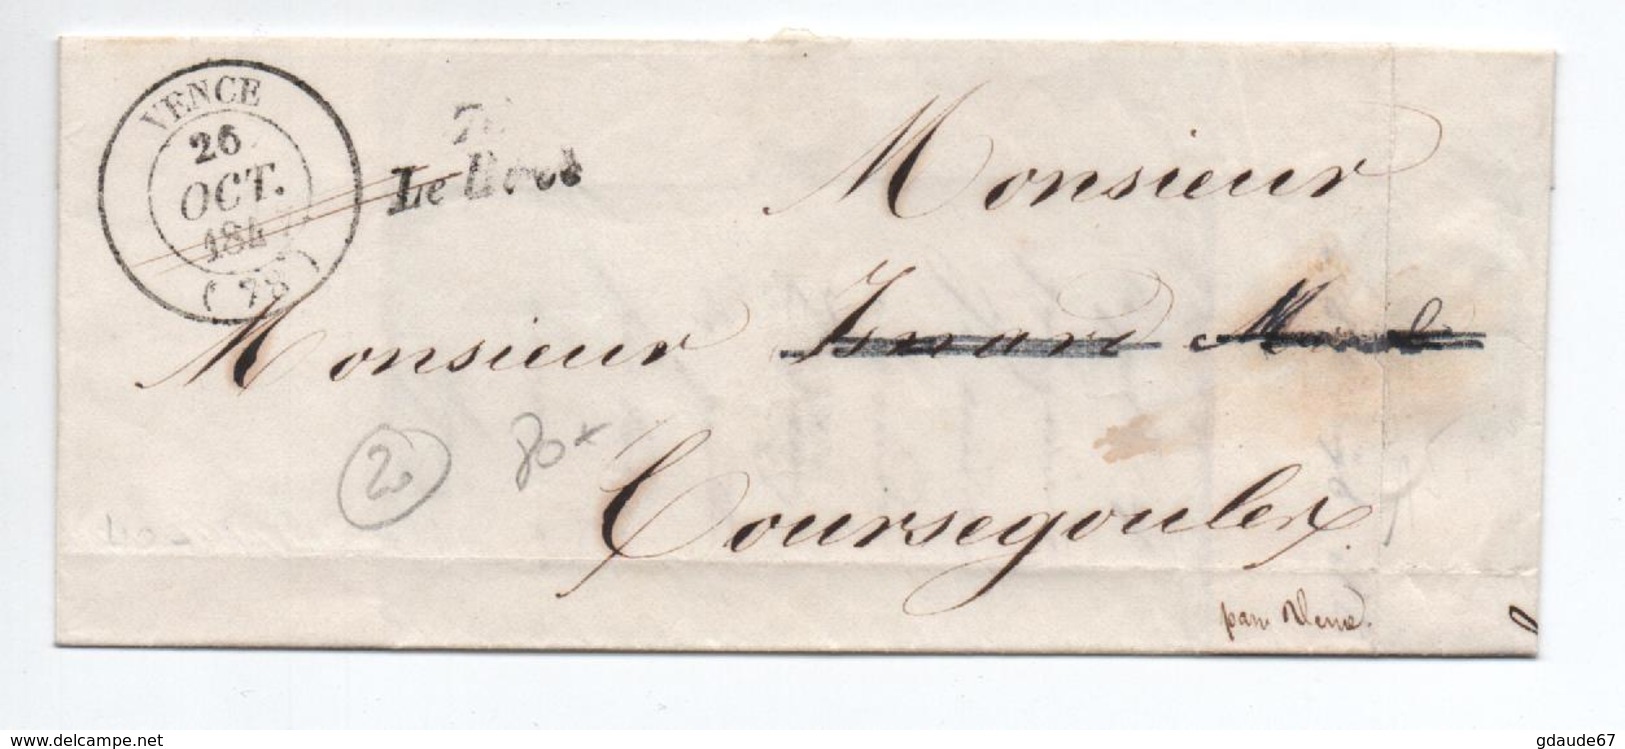 VENCE
26
OCT.
184
(78)
Le
Monsieur
Monsieur Isnard
Coursegoules
20
80
par Vence.
www.delcampe.net
gdaude67